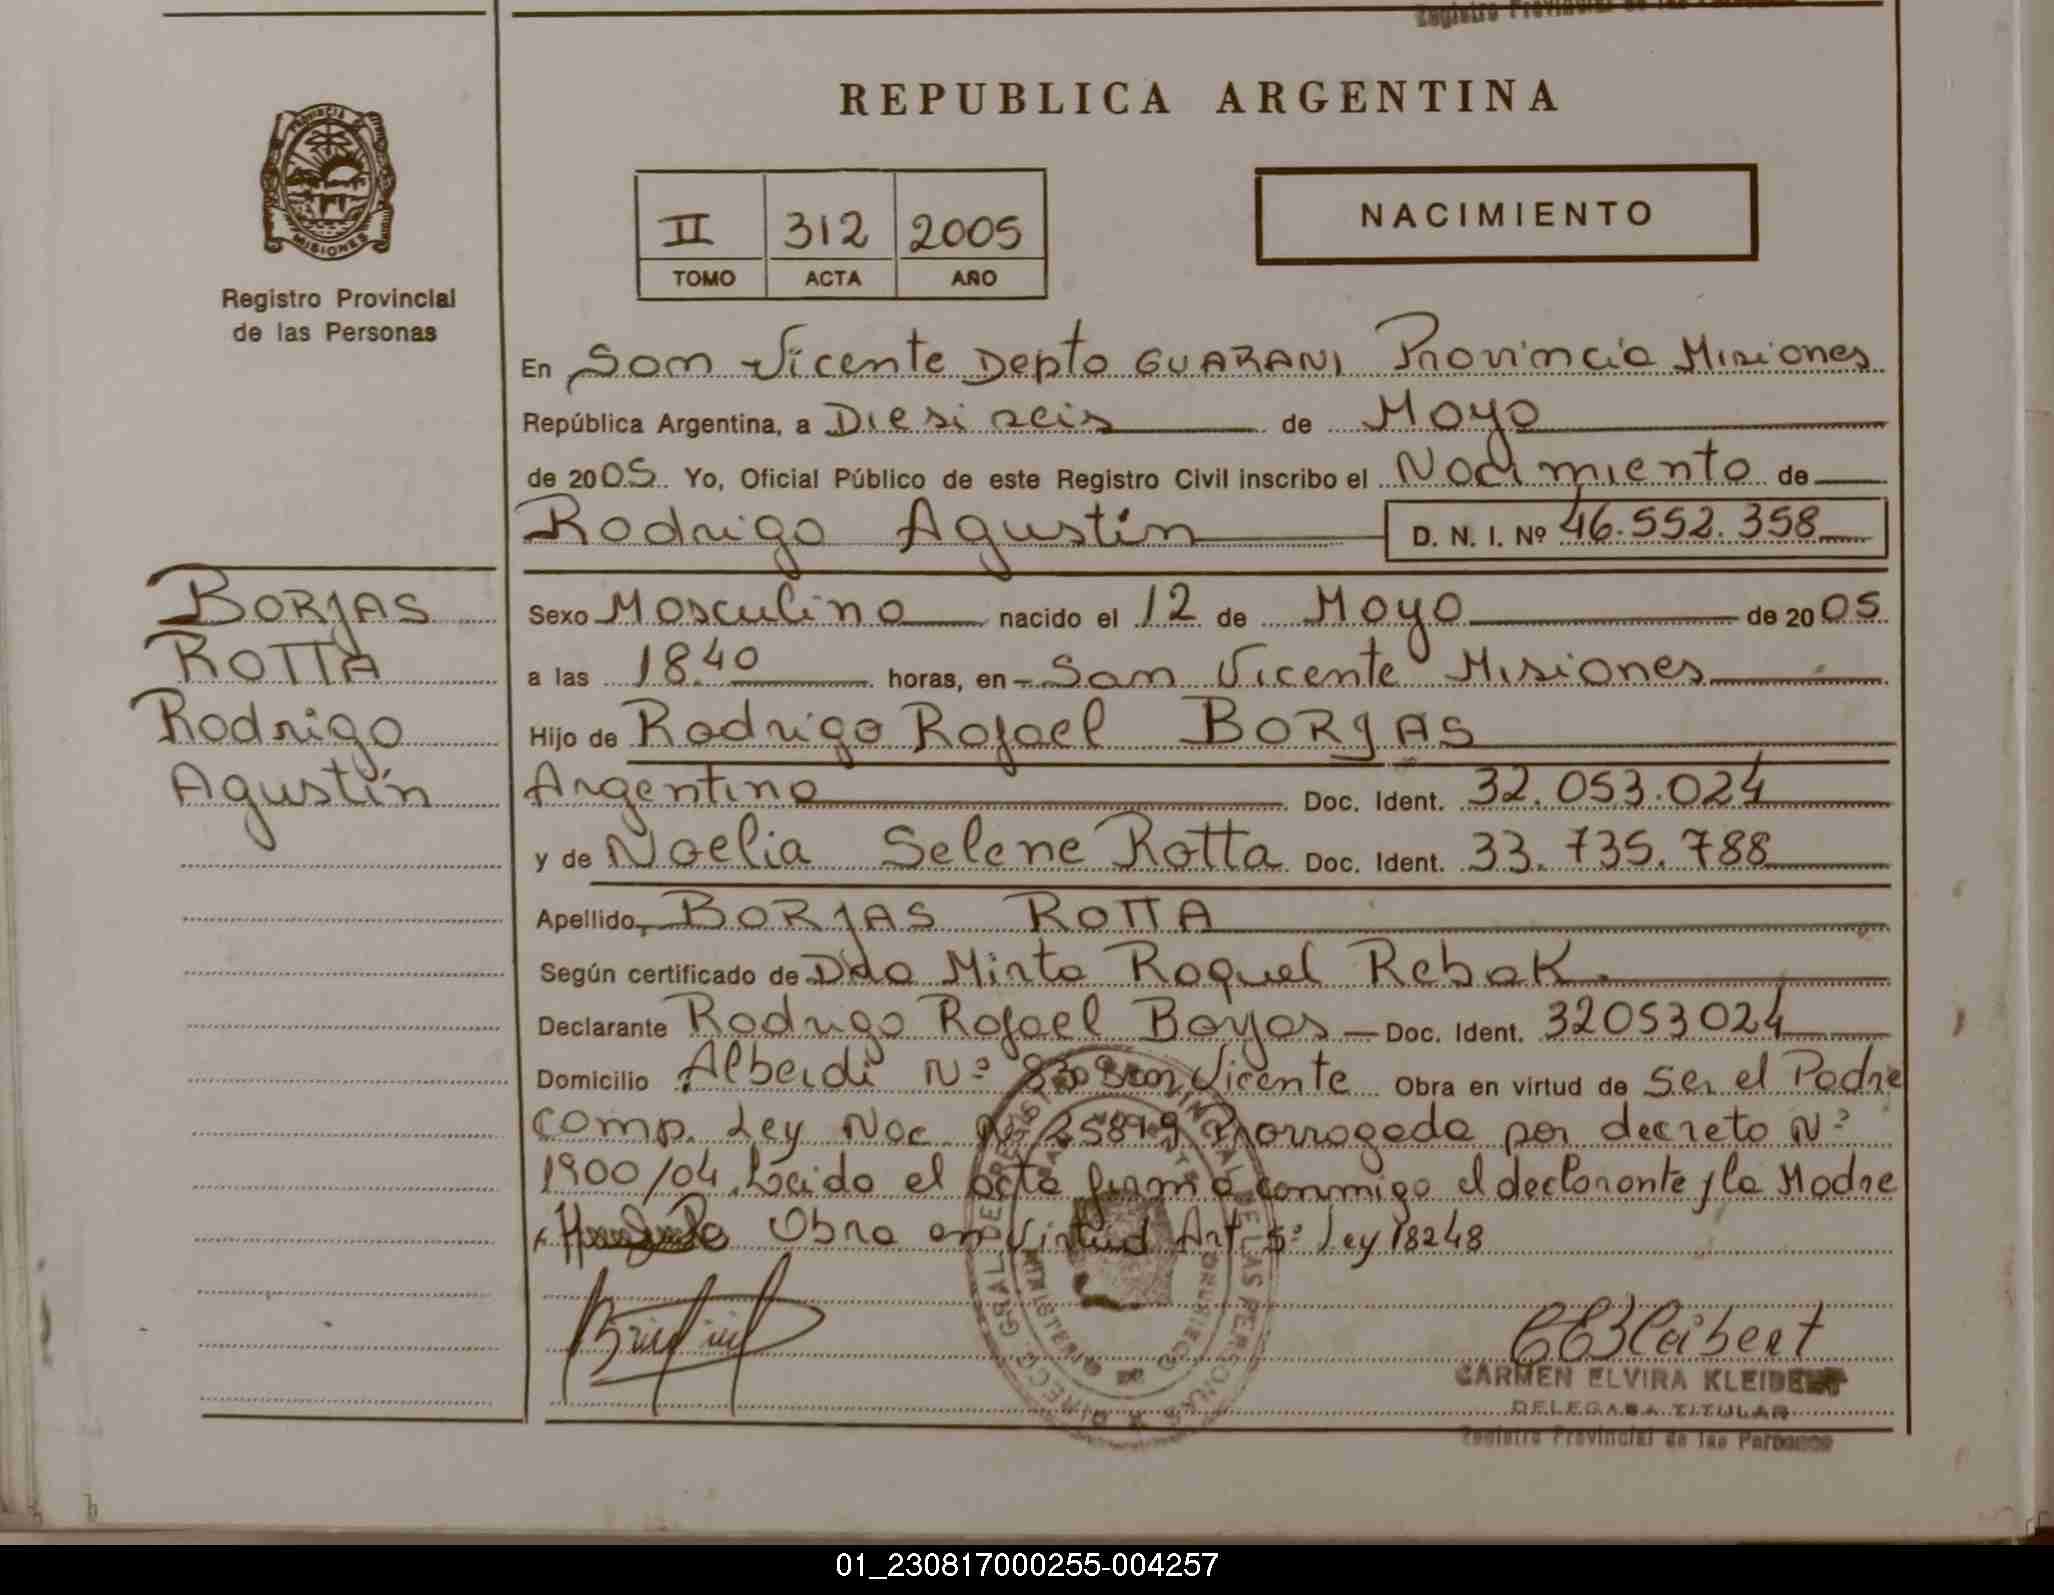 Registro Provincial de las Personas
REPUBLICA ARGENTINA
PROVINCIA DE
MISIONES
Registro Provincial
de las Personas
II 312 2005
TOMO ACTA AÑO
NACIMIENTO
En San Vicente Depto GUARANI Provincia Misiones
República Argentina, a Diesi seis de Mayo
de 2005 Yo, Oficial Público de este Registro Civil inscribo el Nacimiento de
Rodrigo Agustín D. N. I. Nº 46.552.358
BORJAS
ROTTA
Rodrigo
Agustín
Sexo Masculino nacido el 12 de Mayo de 2005
a las 18.40 horas, en San Vicente Misiones
Hijo de Rodrigo Rafael BORJAS
Argentino Doc. Ident. 32.053.024
y de Noelia Selene Rotta Doc. Ident. 33.735.788
Apellido, BORJAS ROTTA
Según certificado de Dra Mirta Raquel Rebak.
Declarante Rodrigo Rafael Borjas Doc. Ident. 32053024
Domicilio Alberdi Nº 830 San Vicente Obra en virtud de Ser el Padre
comp. Ley Nac Nº 25899 Prorrogada por decreto Nº
1900/04. Leída el acta firma conmigo el declarante y la Madre
Obra en Virtud Art 5º Ley 18248
CARMEN ELVIRA KLEIBERT
DELEGADA TITULAR
Registro Provincial de las Personas
01_230817000255-004257